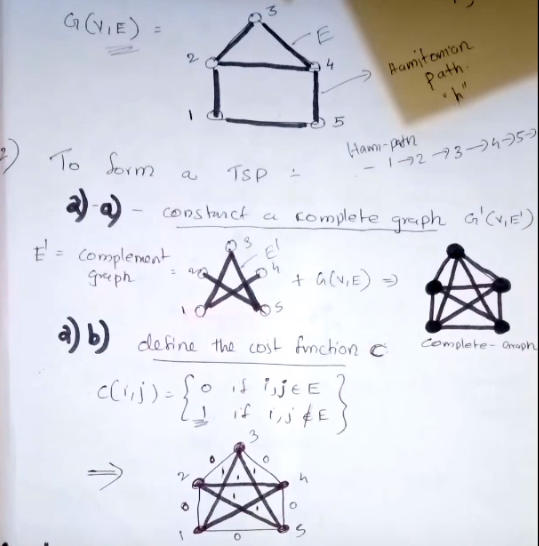 3
G(V,E) =
E
2
4
Hamitonian
Path.
"h"
1
5
2)
Hami-path
To form a TSP :-
- 1→2→3→4→5→
a)-a) - construct a complete graph G'(V,E')
E' = complement
graph
=
3
E'
2
4
1
5
+ G(V,E) ⇒
Complete-Graph
a) b) define the cost function C
C(i,j) = { 0 if i,j ∈ E
1 if i,j ∉ E }
⇒
3
0 0
2
1 1
4
0
1 1
1
0
1
0
5